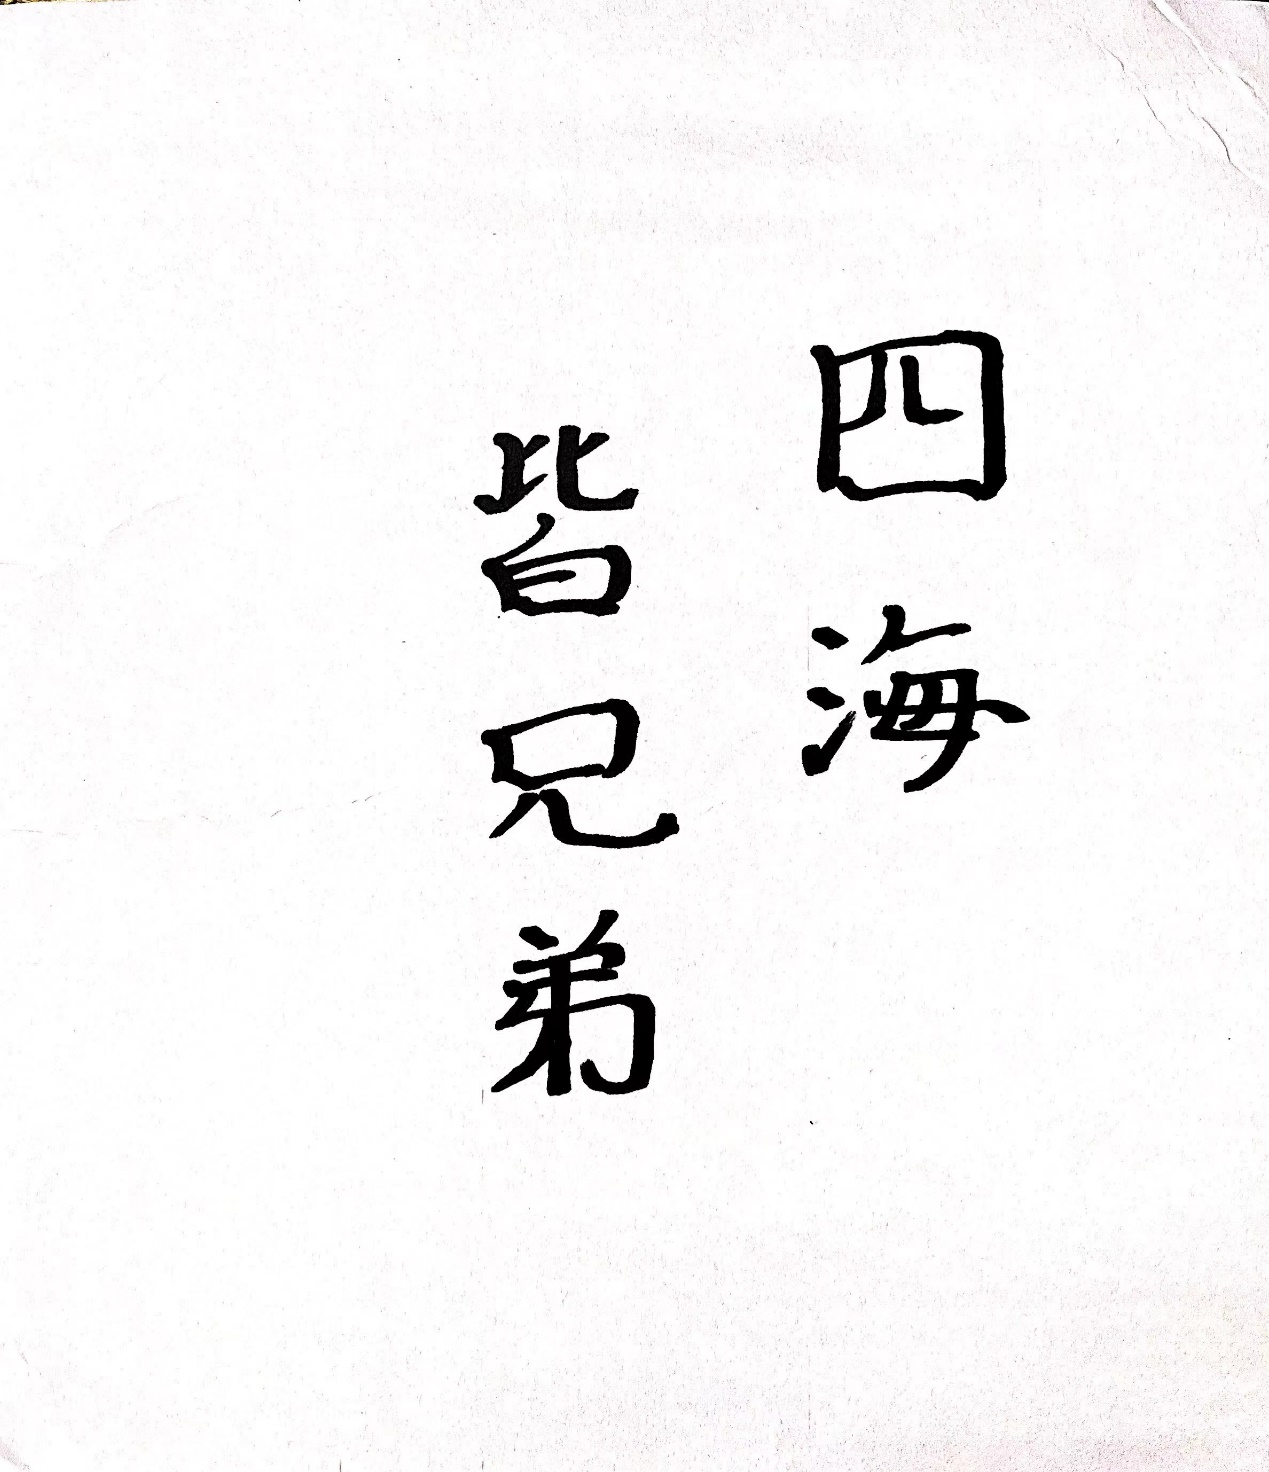 四海
皆兄弟